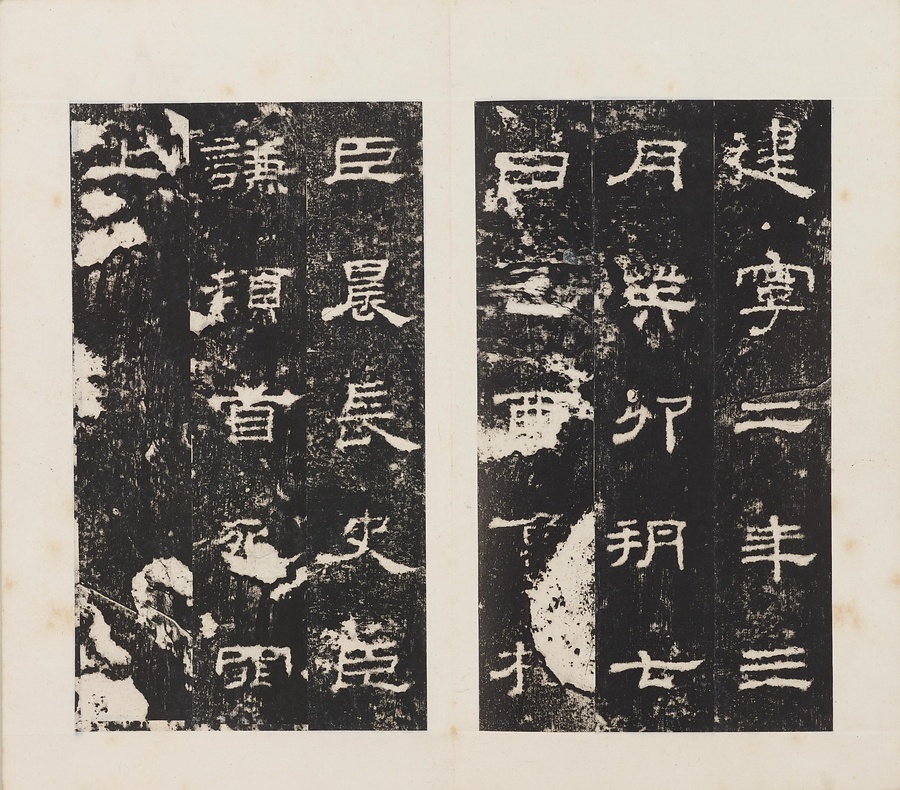 建寧二年三
月癸卯朔七
日己酉
臣晨長史臣
謙頓首死罪
上